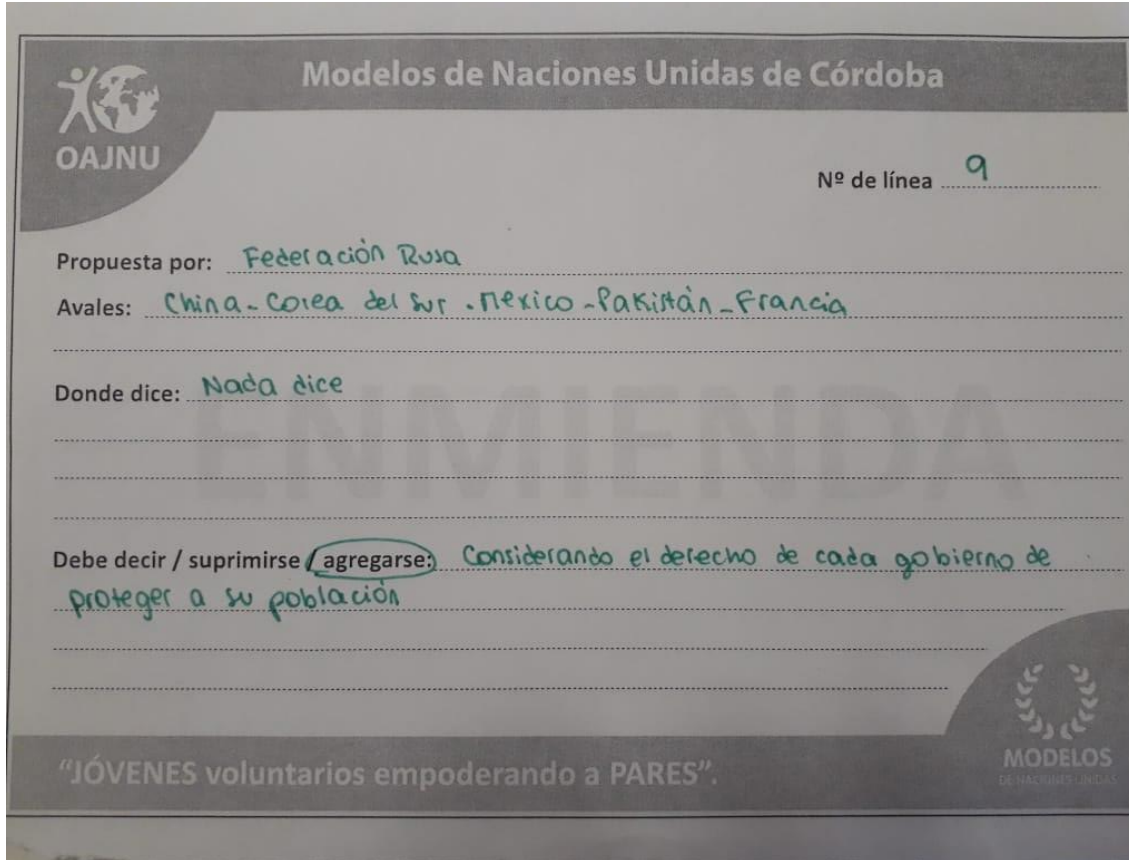 Modelos de Naciones Unidas de Córdoba
OAJNU
Nº de línea 9
Propuesta por: Federación Rusa
Avales: China - Corea del Sur - Mexico - Pakistán - Francia
Donde dice: Nada dice
ENMIENDA
Debe decir / suprimirse / agregarse: Considerando el derecho de cada gobierno de
proteger a su población
"JÓVENES voluntarios empoderando a PARES".
MODELOS
DE NACIONES UNIDAS